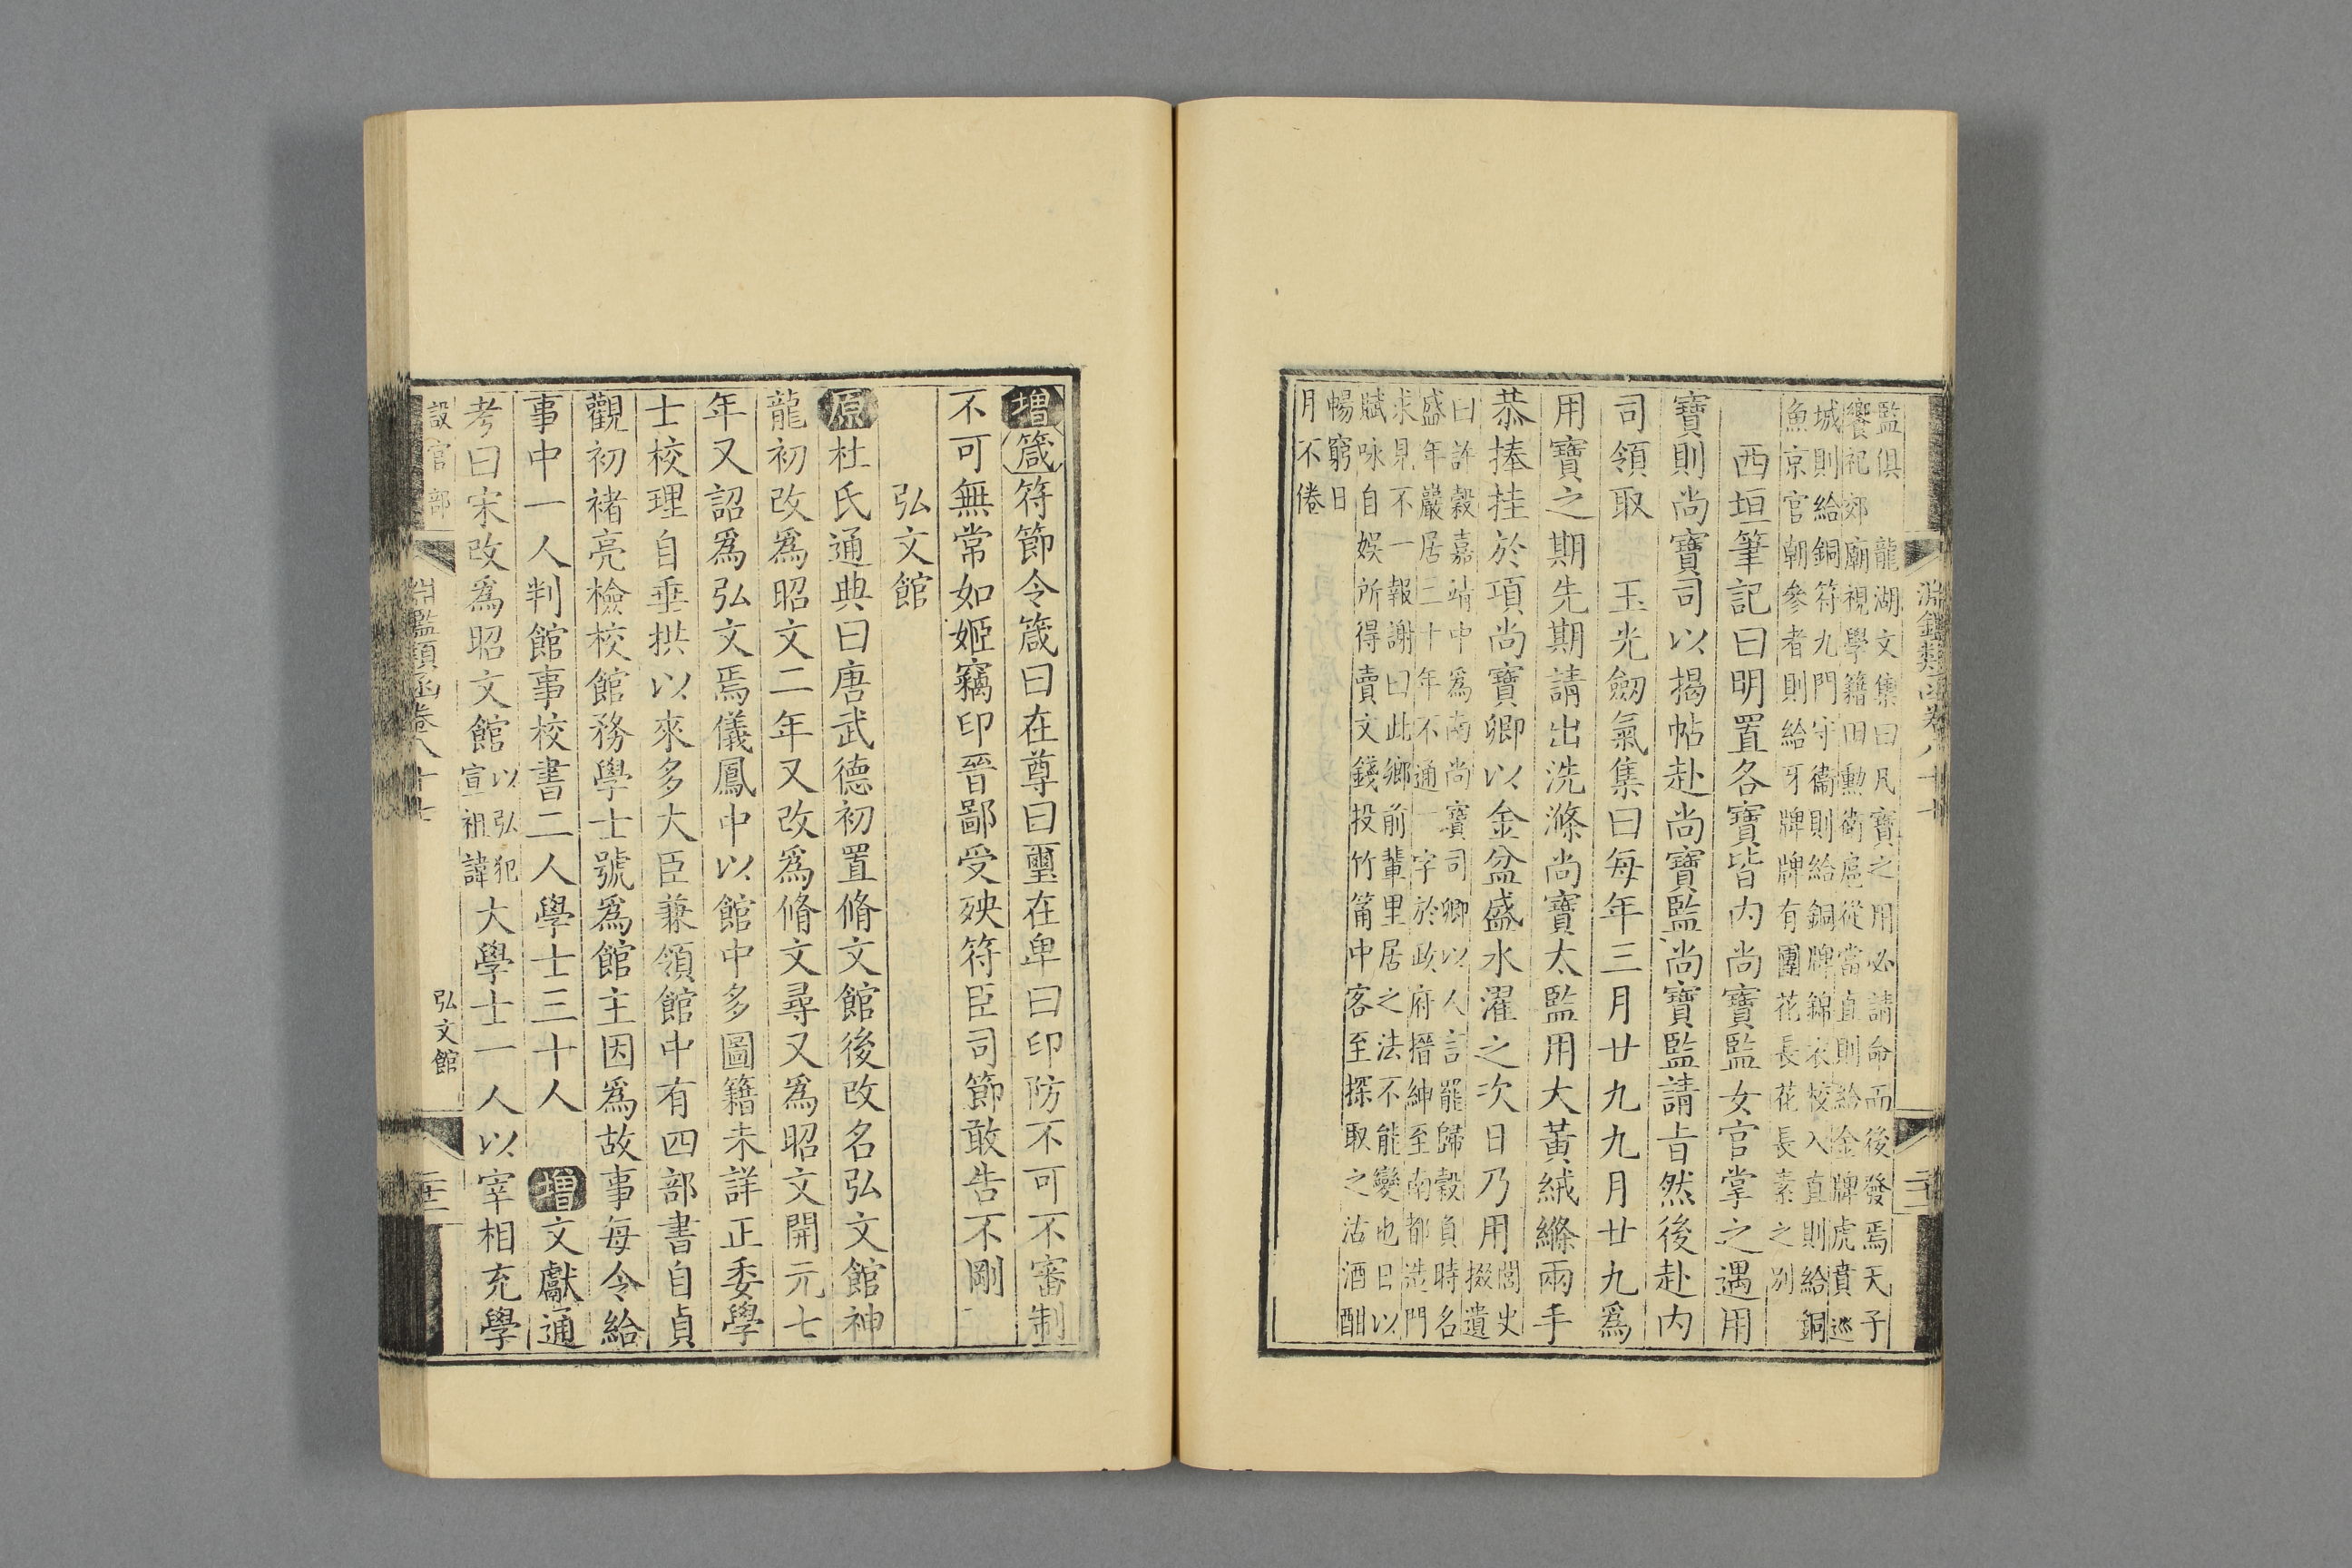 淵鑑類函卷八十七
監俱　龍湖文集曰凡寶之用必請命而後發焉天子
饗祀郊廟視學籍田勳衛扈從當直則給金牌虎賁巡
城則給銅符九門守衞則給銅牌錦衣校入直則給銅
魚京官朝參者則給牙牌牌有團花長花長素之別
西垣筆記曰明置各寶皆内尚寶監女官掌之遇用
寶則尚寶司以揭帖赴尚寶監尚寶監請旨然後赴内
司領取　玉光劔氣集曰每年三月廿九九月廿九爲
用寶之期先期請出洗滌尚寶太監用大黃絨縧兩手
恭捧挂於項尚寶卿以金盆盛水濯之次日乃用閣史掇遺
曰許穀嘉靖中爲南尚寶司卿以人言罷歸穀負時名
盛年巖居三十年不通一字於政府搢紳至南都造門
求見不一報謝曰此鄉前輩里居之法不能變也日以
賦咏自娛所得賣文錢投竹筩中客至探取之沽酒酣
暢窮日
月不倦
增箴符節令箴曰在尊曰璽在卑曰印防不可不審制
不可無常如姬竊印晉鄙受殃符臣司節敢告不剛
弘文館
原杜氏通典曰唐武德初置脩文館後改名弘文館神
龍初改爲昭文二年又改爲脩文尋又爲昭文開元七
年又詔爲弘文焉儀鳳中以館中多圖籍未詳正委學
士校理自垂拱以來多大臣兼領館中有四部書自貞
觀初褚亮檢校館務學士號爲館主因爲故事每令給
事中一人判館事校書二人學士三十人　增文獻通
考曰宋改爲昭文館以弘犯宣祖諱大學士一人以宰相充學
設官部
淵鑑類函卷八十七
弘文館